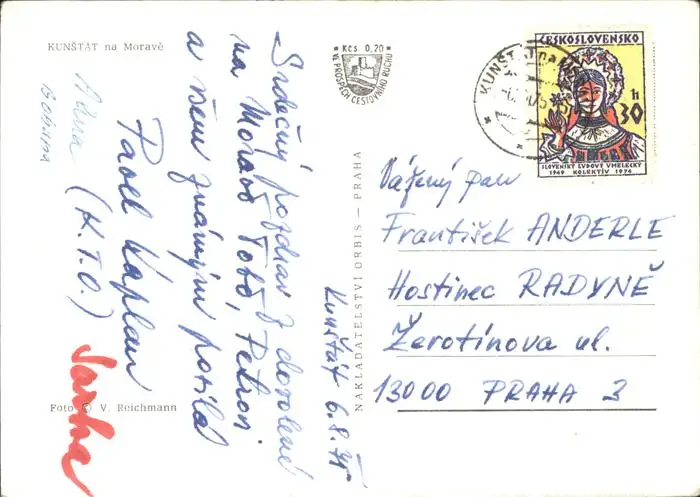 KUNŠTÁT na Moravě
Kčs 0,20
VE PROSPĚCH CESTOVNÍHO RUCHU
KUNŠTÁT na
ČESKOSLOVENSKO
30 h
SLOVENSKÝ ĽUDOVÝ UMELECKÝ
1949 KOLEKTÍV 1974
Kunštát 6.8.75
Srdečný pozdrav z dovolené
na Moravě Tobě, Petrovi
a všem známým posílá
Pavel Kaplan
(K.T.O.)
Vážený pan
František ANDERLE
Hostinec RADYNĚ
Žerotínova ul.
13000 PRAHA 3
NAKLADATELSTVÍ ORBIS – PRAHA
Foto © V. Reichmann